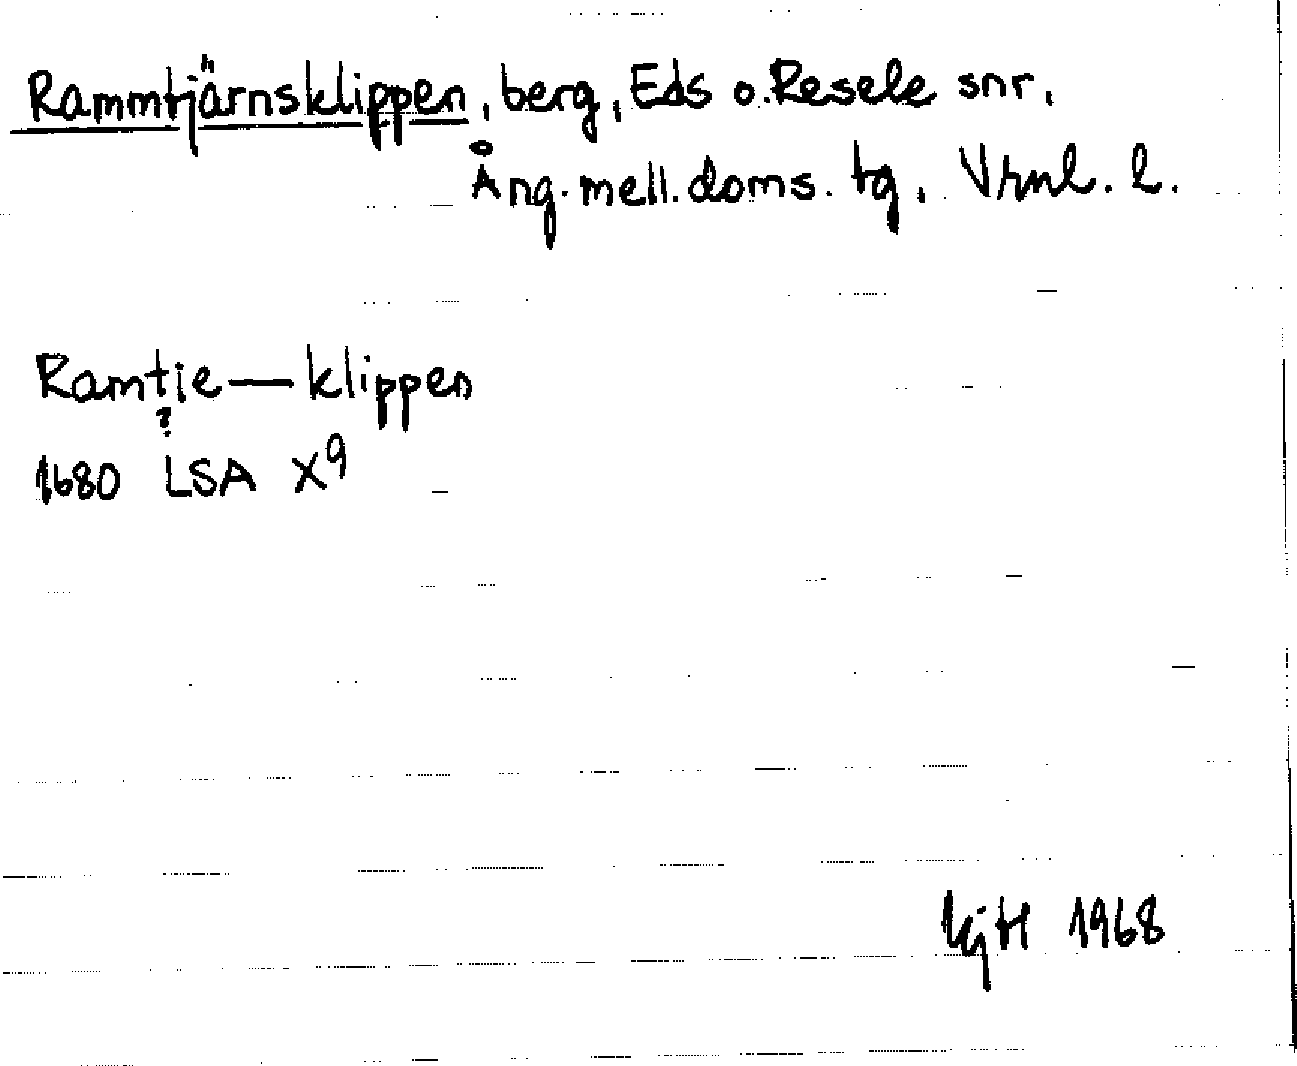 Rammtjärnsklippen, berg, Eds o. Resele snr,
Ång. mell. doms. tg, Vrnl. l.
Ramtie—klippen
?
1680 LSA X9
KjH 1968